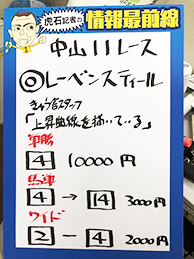 虎石記者の
情報最前線
中山11レース
◎レーベンスティール
きゅう舎スタッフ
「上昇曲線を描いている」
単勝
4 10000円
馬連
4 → 14 3000円
ワイド
2 ー 4 2000円